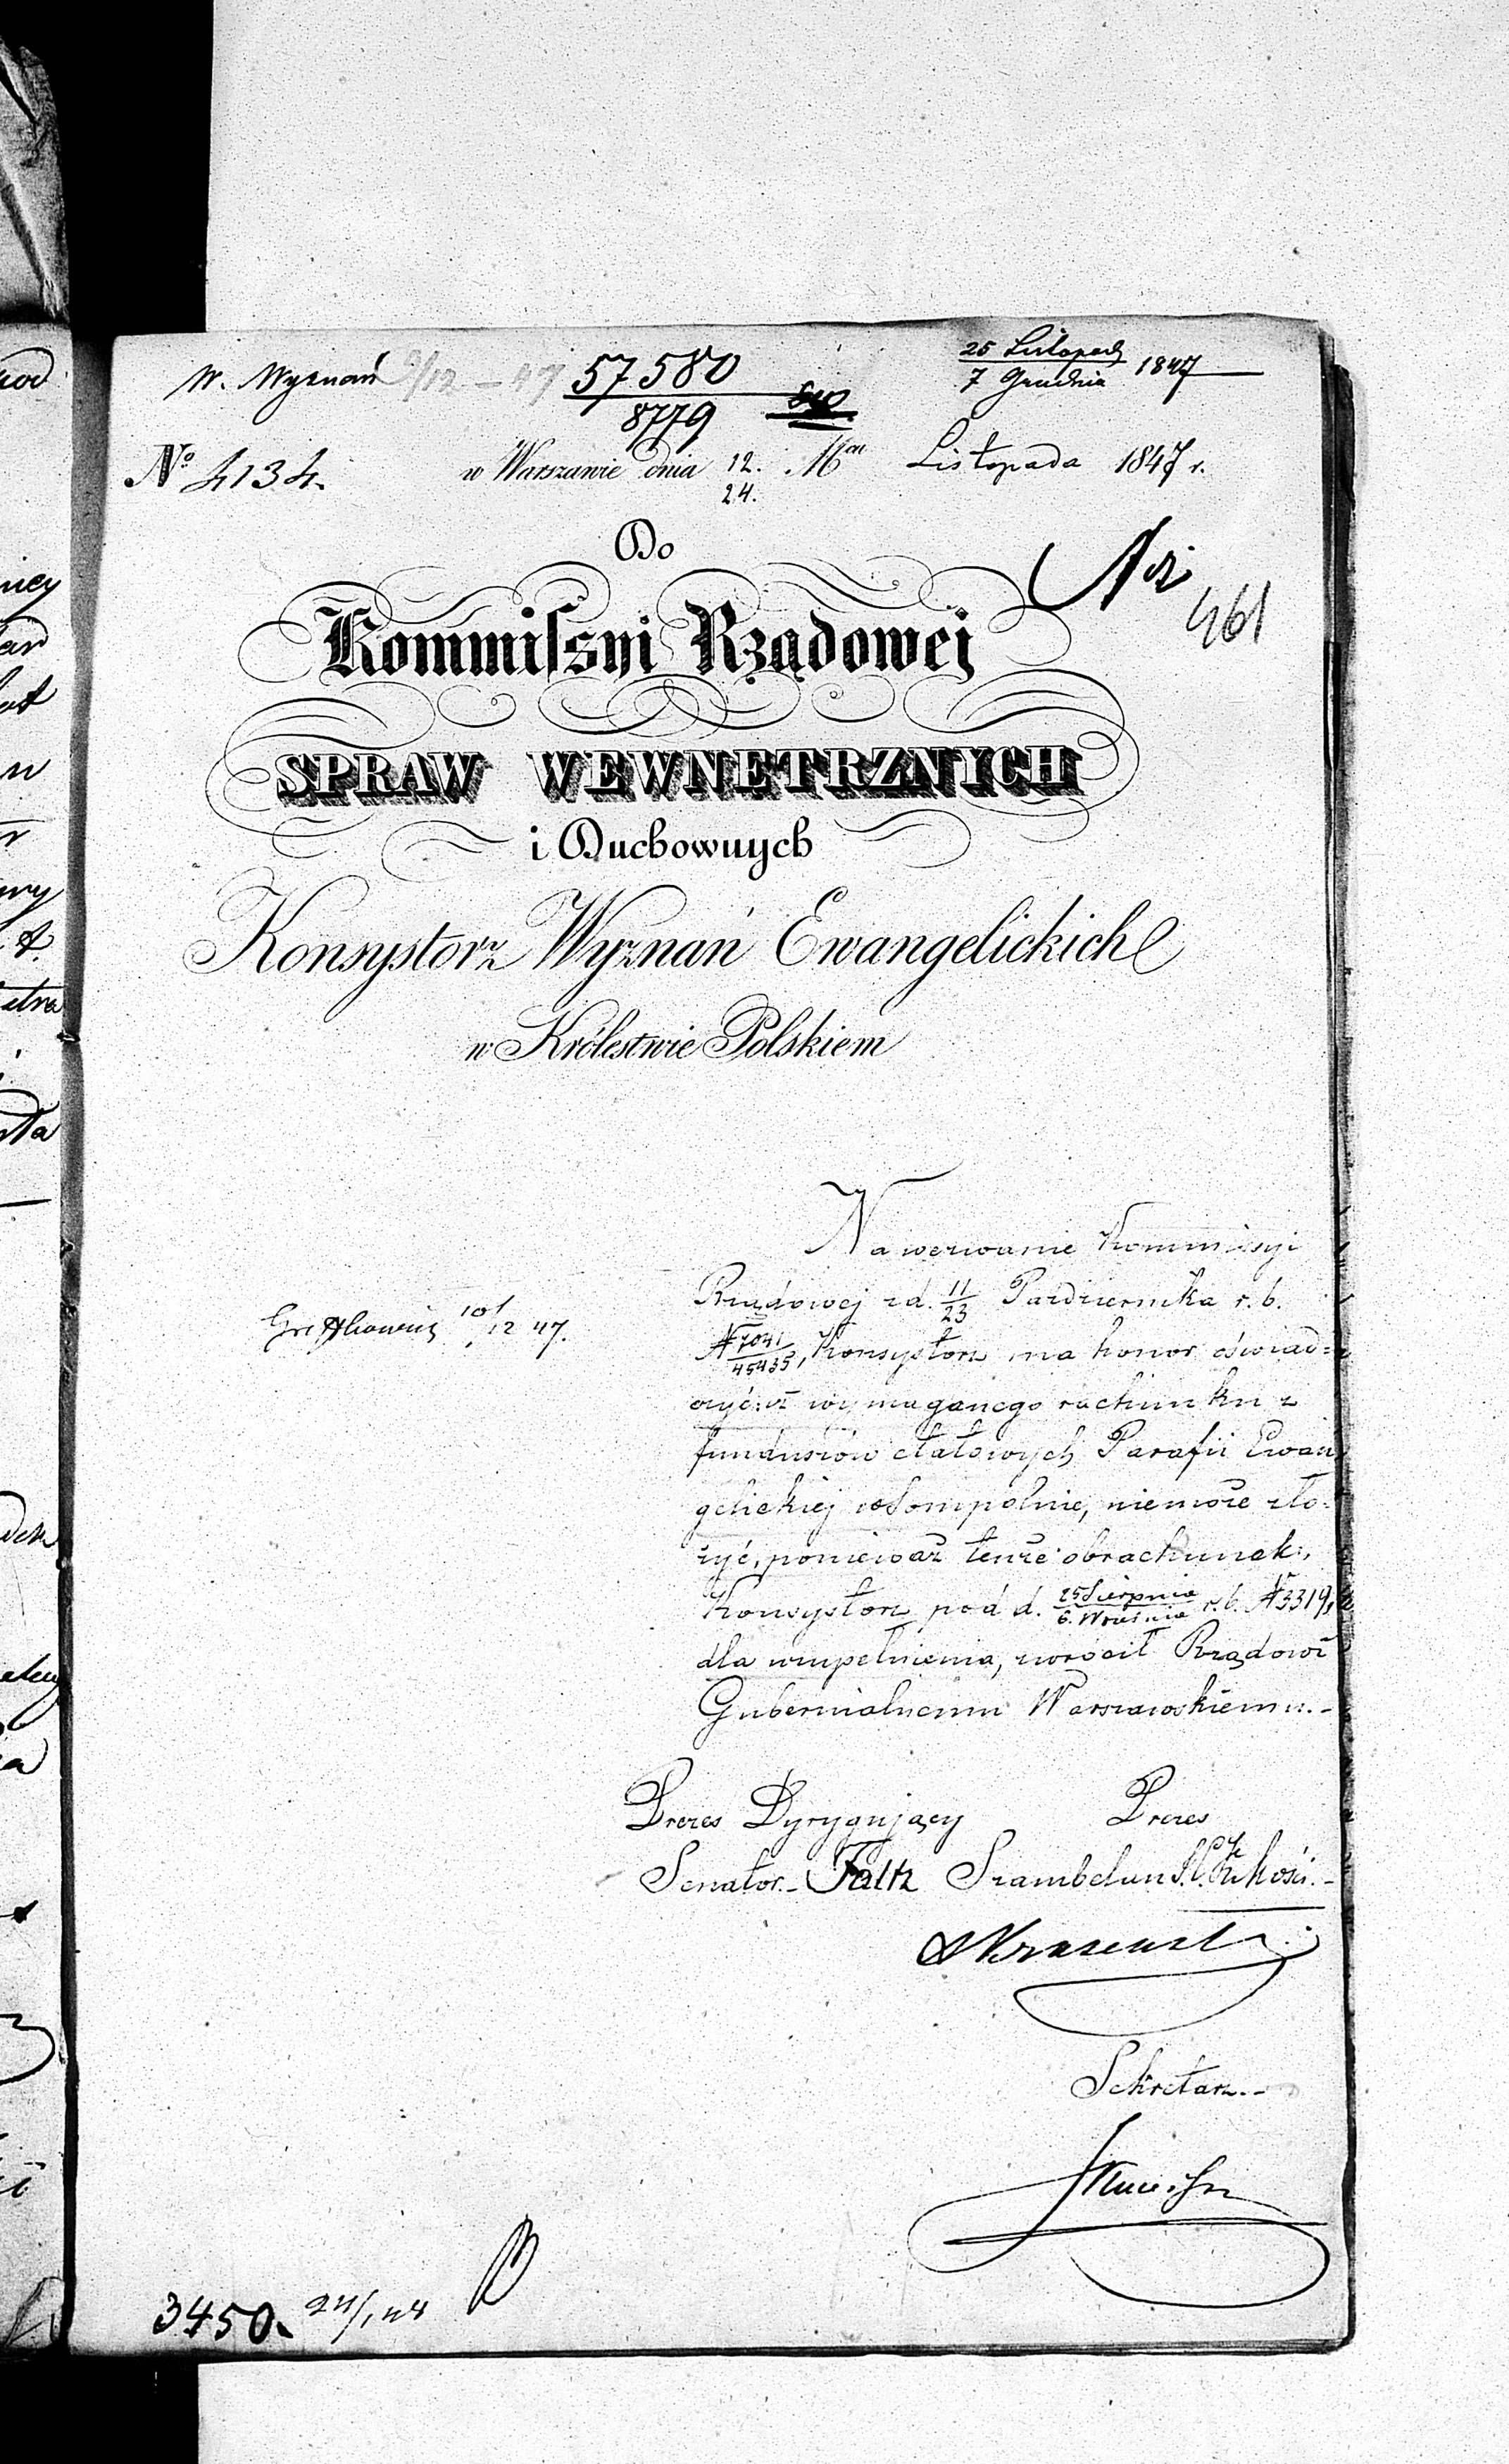 W. Wyznań 9/12 – 47 57580 25 Listopada 1847
8779 7 Grudnia
No 4134. w Warszawie dnia 12. Mca Listopada 1847 r.
24.
Do
461
Kommissyi Rządowej
SPRAW WEWNETRZNYCH
i Duchownych
Konsystorz Wyznań Ewangelickich
w Królestwie Polskiem
Na wezwanie Kommissyi
Rządowej z d. 11/23 Października r. b.
N 7041/45435, Konsystorz ma honor oświad=
czyć: iż wymaganego rachunku z
funduszów etatowych Parafii Ewan
gelickiej w Sompolnie, niemoże zło=
żyć, ponieważ tenże obrachunek,
Konsystorz pod d. 25 Sierpnia/6. Września r. b. N 3319,
dla uzupełnienia, zwrócił Rządowi
Gubernialnemu Warszawskiemu.-
10/12 47.
Prezes Dyrygujący Prezes
Senator.- Szambelan
Sekretarz.-
3450. 24/1 48